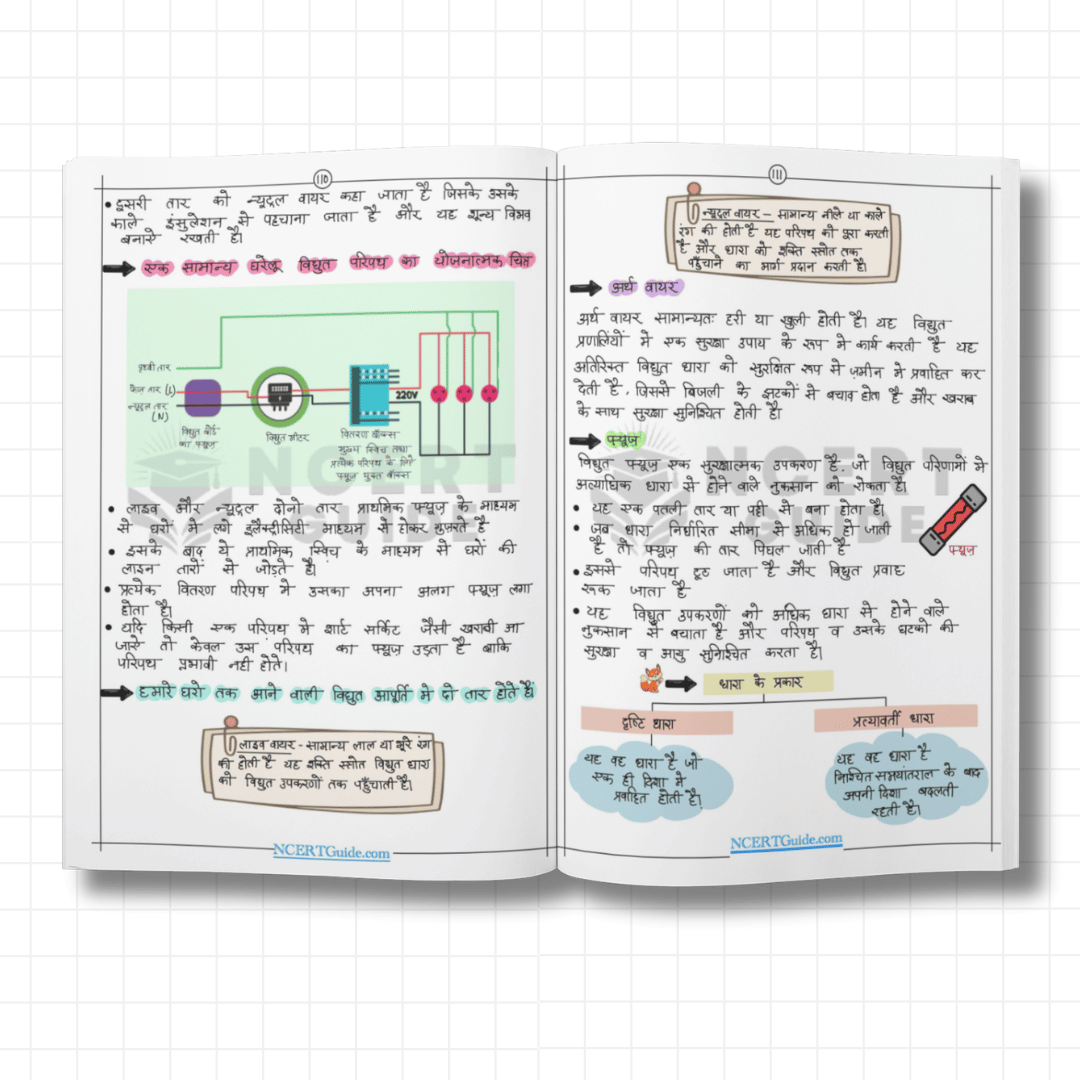 110
• दूसरी तार को न्यूट्रल वायर कहा जाता है जिसके उसके
काले इंसुलेशन से पहचाना जाता है और यह शून्य विभव
बनाये रखती है।
एक सामान्य घरेलू विद्युत परिपथ का योजनात्मक चित्र
पृथ्वी तार
फेज तार (L)
न्यूट्रल तार
(N)
220V
विद्युत बोर्ड
का फ्यूज़
विद्युत मीटर
वितरण बॉक्स
मुख्य स्विच तथा
प्रत्येक परिपथ के लिए
फ्यूज़ युक्त बॉक्स
NCERT
GUIDE
• लाइव और न्यूट्रल दोनो तार प्राथमिक फ्यूज़ के माध्यम
से घरों में लगे इलैक्ट्रीसिटी माध्यम से होकर गुजरते है
• इसके बाद ये प्राथमिक स्विच के माध्यम से घरों की
लाइन तारों से जोड़ते है।
• प्रत्येक वितरण परिपथ मे उसका अपना अलग फ्यूज़ लगा
होता है।
• यदि किसी एक परिपथ मे शार्ट सर्किट जैसी खराबी आ
जाये तो केवल उस परिपथ का फ्यूज़ उड़ता है बाकि
परिपथ प्रभावी नही होते।
हमारे घरो तक आने वाली विद्युत आपूर्ति मे दो तार होते हैं।
लाइव वायर - सामान्य लाल या भूरे रंग
की होती है यह शक्ति स्त्रोत विद्युत धारा
को विद्युत उपकरणों तक पहुँचाती है।
NCERTGuide.com
111
न्यूट्रल वायर - सामान्य नीले या काले
रंग की होती है यह परिपथ को पूरा करती
है और धारा को शक्ति स्त्रोत तक
पहुँचाने का मार्ग प्रदान करती है।
अर्थ वायर
अर्थ वायर सामान्यतः हरी या खुली होती है। यह विद्युत
प्रणालियों मे एक सुरक्षा उपाय के रूप मे कार्य करती है यह
अतिरिक्त विद्युत धारा को सुरक्षित रूप से ज़मीन मे प्रवाहित कर
देती है, जिससे बिजली के झटकों से बचाव होता है और खराब
के साथ सुरक्षा सुनिश्चित होती है।
फ्यूज़
विद्युत फ्यूज़ एक सुरक्षात्मक उपकरण है, जो विद्युत परिणामों मे
अत्याधिक धारा से होने वाले नुकसान को रोकता है।
• यह एक पतली तार या पट्टी से बना होता है।
• जब धारा निर्धारित सीमा से अधिक हो जाती
है तो फ्यूज़ की तार पिघल जाती है
फ्यूज़
• इससे परिपथ टूठ जाता है और विद्युत प्रवाह
रूक जाता है
• यह विद्युत उपकरणों को अधिक धारा से होने वाले
नुकसान से बचाता है और परिपथ व उसके घटको की
सुरक्षा व आयु सुनिश्चित करता है।
NCERT
GUIDE
धारा के प्रकार
दृष्टि धारा
प्रत्यावर्ती धारा
यह वह धारा है जो
एक ही दिशा मे
प्रवाहित होती है।
यह वह धारा है
निश्चित समयांतराल के बाद
अपनी दिशा बदलती
रहती है।
NCERTGuide.com